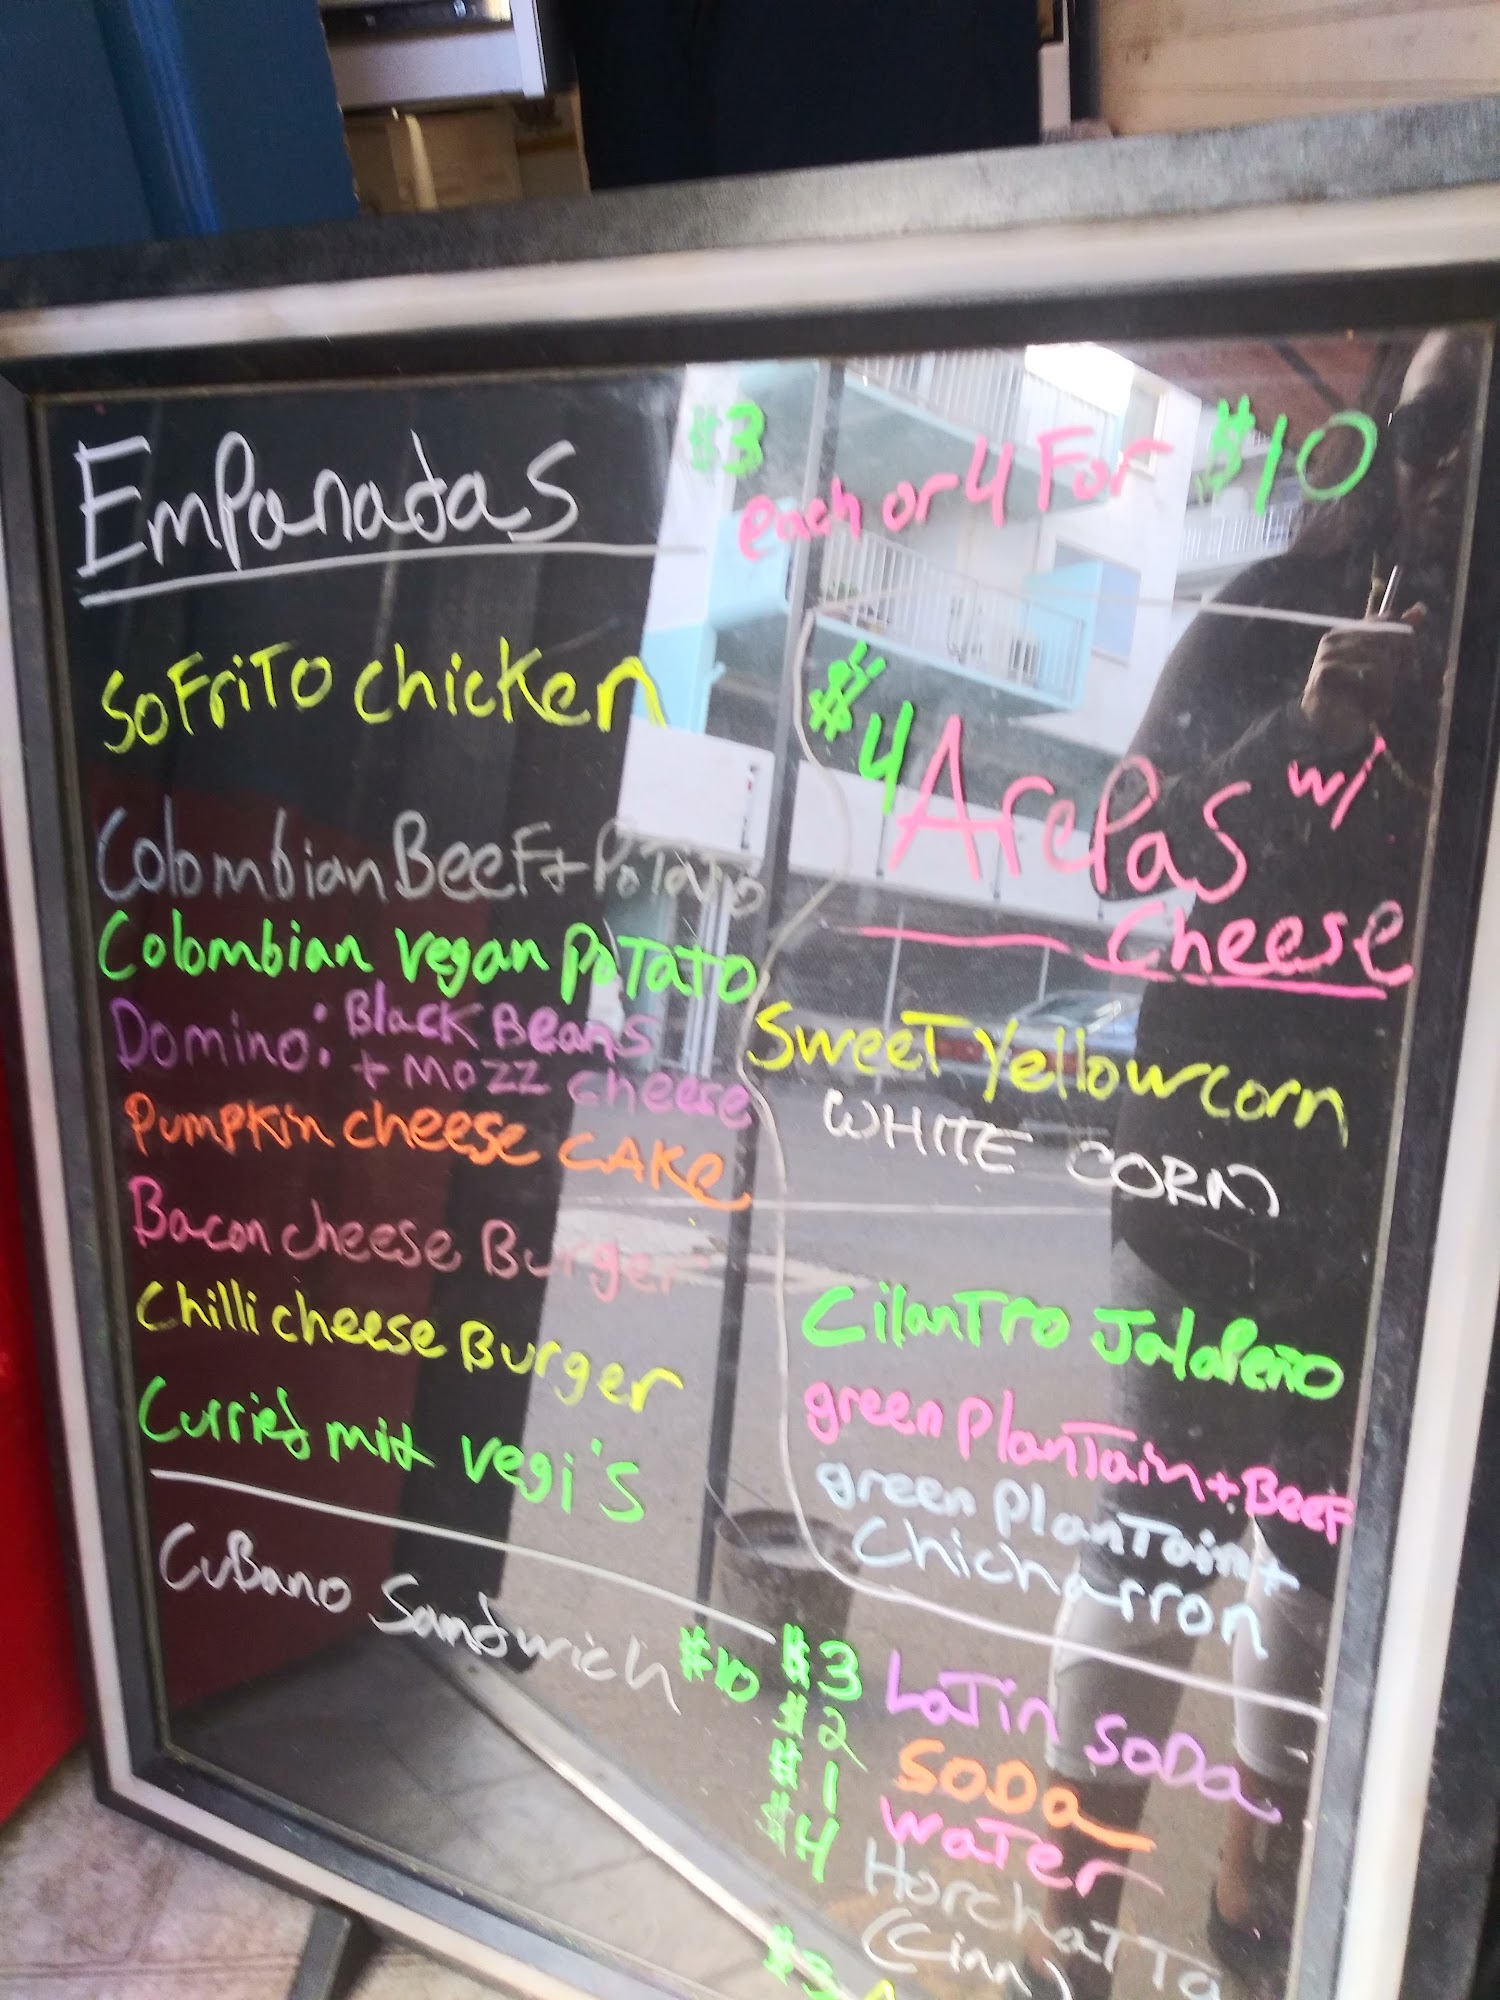 Empanadas $3 each or 4 For $10
Sofrito chicken
Colombian Beef + Potato
Colombian vegan Potato
Domino: Black Beans
+ Mozz cheese
Pumpkin cheese CAKe
Bacon cheese Burger
Chilli cheese Burger
Curried mix vegi's
Cubano Sandwich $10
$4 Arepas w/
Cheese
Sweet Yellow corn
WHITE CORN
Cilantro Jalapeño
green Plantain + Beef
green Plantain +
Chicharron
$3 Latin Soda
$2 Soda
$1 Water
$4 Horchatta
(Cinn)